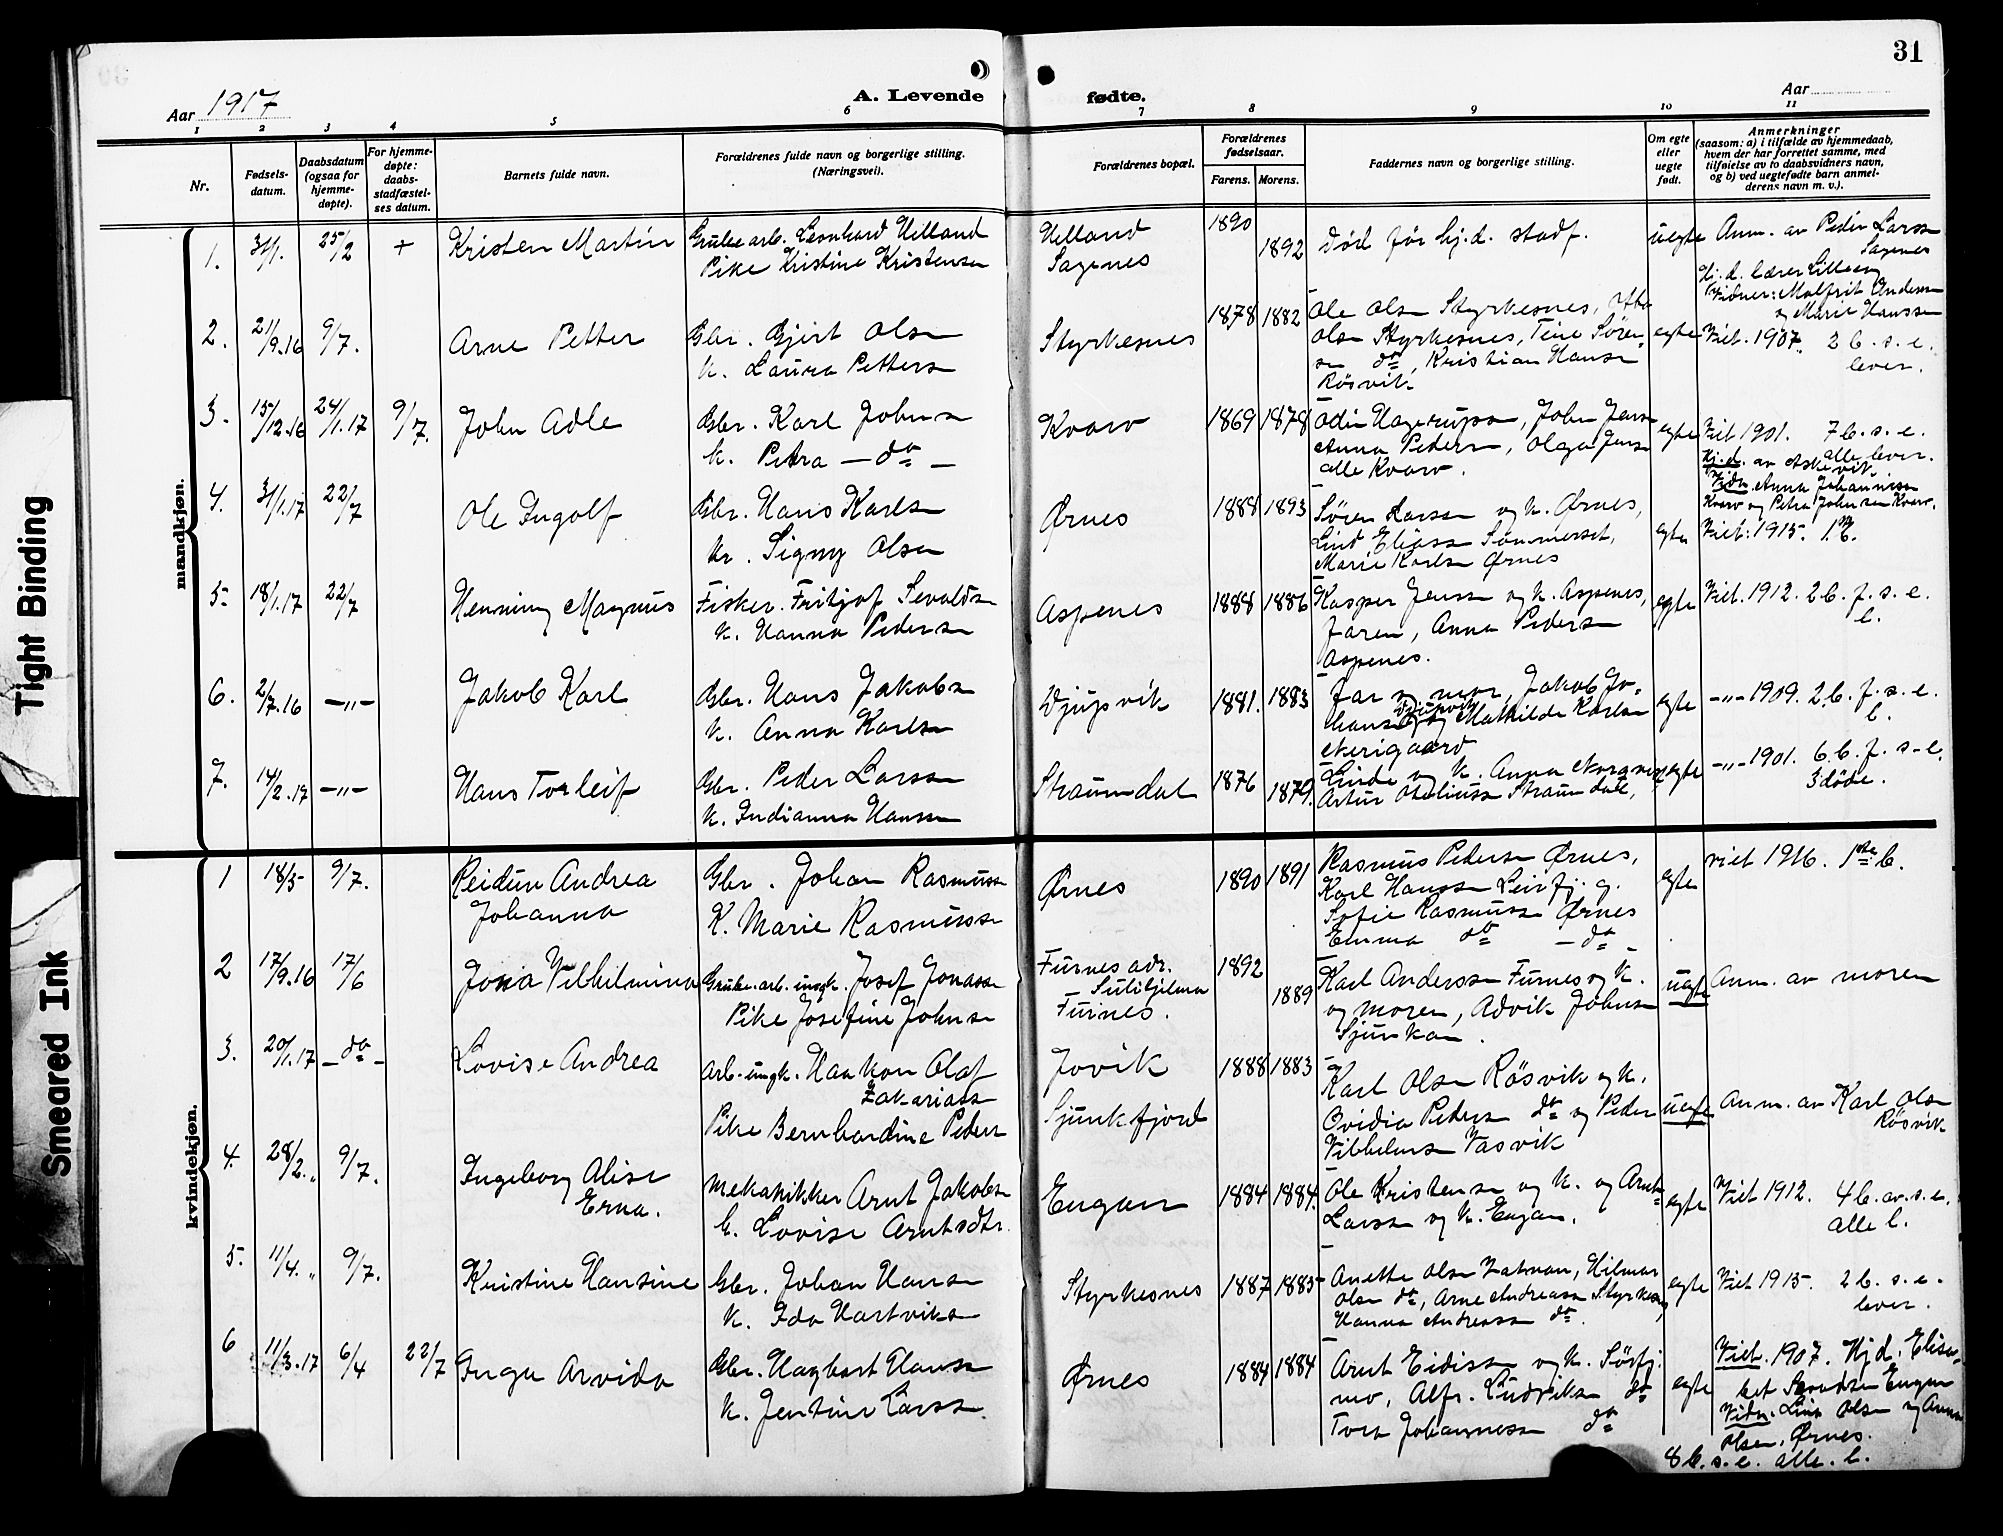 31
Aar 1917
A. Levende fødte.
Aar
1 2 3 4 5 6 7 8 9 10 11
Nr.
Fødsels-
datum.
Daabsdatum
(ogsaa for
hjemme-
døpte).
For hjemme-
døpte:
daabs-
stadfæstel-
ses datum.
Barnets fulde navn.
Forældrenes fulde navn og borgerlige stilling.
(Næringsvei).
Forældrenes bopæl.
Forældrenes
fødselsaar.
Farens. Morens.
Faddernes navn og borgerlige stilling.
Om egte
eller
uegte
født.
Anmerkninger
(saasom: a) i tilfælde av hjemmedaab,
hvem der har forrettet samme, med
tilføielse av to daabsvidners navn,
og b) ved uegtefødte barn anmel-
derens navn m. v.).
mandkjøn.
1. 31/1. 25/2 + Kristen Martin
Grubearb. Leonhard Helland
Pike Kristine Kristensen
Helland
Sagenes
1890 1892
Død før hj.d. stadf.
uegte
Anm. av Peder Larssen
Sagenes
Hj.d. lærer
Vidner: Malfrit Andersen
og Marie Hanssen
2. 21/9.16 9/7. Arne Petter
Gbr. Gjert Olsen
K. Laura Petters
Styrkesnes
1878 1882
Ole Olsen Styrkesnes,
Olsen Styrkesnes, Tine Søren-
sen do, Kristian Hansen
Røsvik
egte
Viet. 1907. 2 b. s. e.
lever.
3. 15/12.16 24/1.17 9/7. John Adle
Gbr. Karl Johnsen
K. Petra - do -
Kvarv
1869 1878
Odin Hagerupsen, John Jensen
Anna Pedersen, Olga Jensen
alle Kvarv.
egte
Viet 1901. 7 b. s. e.
alle lever.
Hj.d. av
Vidn. Anna Johannessen
Kvarv og Petra Johnsen Kvarv.
4. 31/1.17 22/7 Ole Ingolf
Gbr. Hans Karlsen
K. Signy Olsen
Ørnes
1888 1893
Søren Larssen og K. Ørnes,
Lind Eliassen Sommerset,
Marie Karlsen Ørnes
egte
Viet: 1915. 1. b.
5. 18/1.17 22/7 Henning Magnus
Fisker. Fritjof Sevaldsen
K. Hanna Pedersen
Aspenes
1888 1886
Kasper Jenssen og K. Aspenes,
Faren, Anna Pedersen
Aspenes.
egte
Viet. 1912. 2 b. f. s. e.
l.
6. 2/7.16 -„- Jakob Karl
Gbr. Hans Jakobsen
K. Anna Karlsen
Djupvik
1881. 1883
Far og mor, Jakob Jo-
hansen Djupvik og Mathilde Karlsen
Nerigaard
egte
-„- 1909. 2 b. f. s. e.
l.
7. 14/2.17 -„- Hans Torleif
Gbr. Peder Larssen
K. Indianna Hanssen
Straumdal
1876 1879.
Linde og K. Anna
Artur Oteliussen Straumdal,
egte
-„- 1901. 6 b. f. s. e.
3 døde.
kvindekjøn.
1 18/5 9/7. Reidun Andrea
Johanna
Gbr. Johan Rasmussen
K. Marie Rasmussen
Ørnes
1890 1891
Rasmus Pedersen Ørnes,
Karl Hanssen Leirfj. g.
Sofie Rasmussen Ørnes
Emma do - do -
egte
viet 1916. 1ste b.
2 17/9.16 17/6 Jona Vilhelmina
Grubearb. ungk. Josef Jonassen
Pike Josefine Johnsen
Furnes adr.
Sulitjelma
Furnes.
1892 1889
Karl Anderssen Furnes og K.
og moren, Advik Johnsen
Sjunkan.
uegte
Anm. av moren
3. 20/1.17 - do - Lovise Andrea
Arb. ungk. Haakon Olaf
Zakariassen
Pike Bernhardine Pedersen
Jovik
Sjunkfjord
1888 1883
Karl Olsen Røsvik og K.
Ovidia Pedersen do og Peder
Vilhelmsen Vasvik
uegte
Anm. av Karl Olsen
Røsvik
4. 28/2. „ 9/7. Ingeborg Alise
Erna.
Mekanikker Arnt Jakobsen
h. Lovise Arntsdtr.
Engan
1884 1884.
Ole Kristensen og K. og Arnt
Larssen og K. Engan.
egte
Viet 1912. 4 b. av. s. e.
alle l.
5. 11/4. „ 9/7. Kristine Hansine
Gbr. Johan Hansen
K. Ida Hartviksen
Styrkesnes
1887 1885
Anette Olsen Vatnan, Hilmar
Olsen do, Arne Andreassen Styrkesnes,
Hanna Andreassen do.
egte
Viet 1915. 2 b. s. e.
lever.
6 11/3.17 6/4 22/7 Inga Arvida
Gbr. Hagbart Hanssen
K. Jentine Larssen
Ørnes
1884 1884
Arnt Eidissen og K. Sørfj.
mo, Alfr. Ludviksen do
Tora Johannessen do
egte
Viet. 1907. Hj.d. Elisa-
bet Engan
Vidn. Lina Olsen og Anna
Olsen, Ørnes.
8 b. s. e. alle. l.
Tight Binding
Smeared Ink